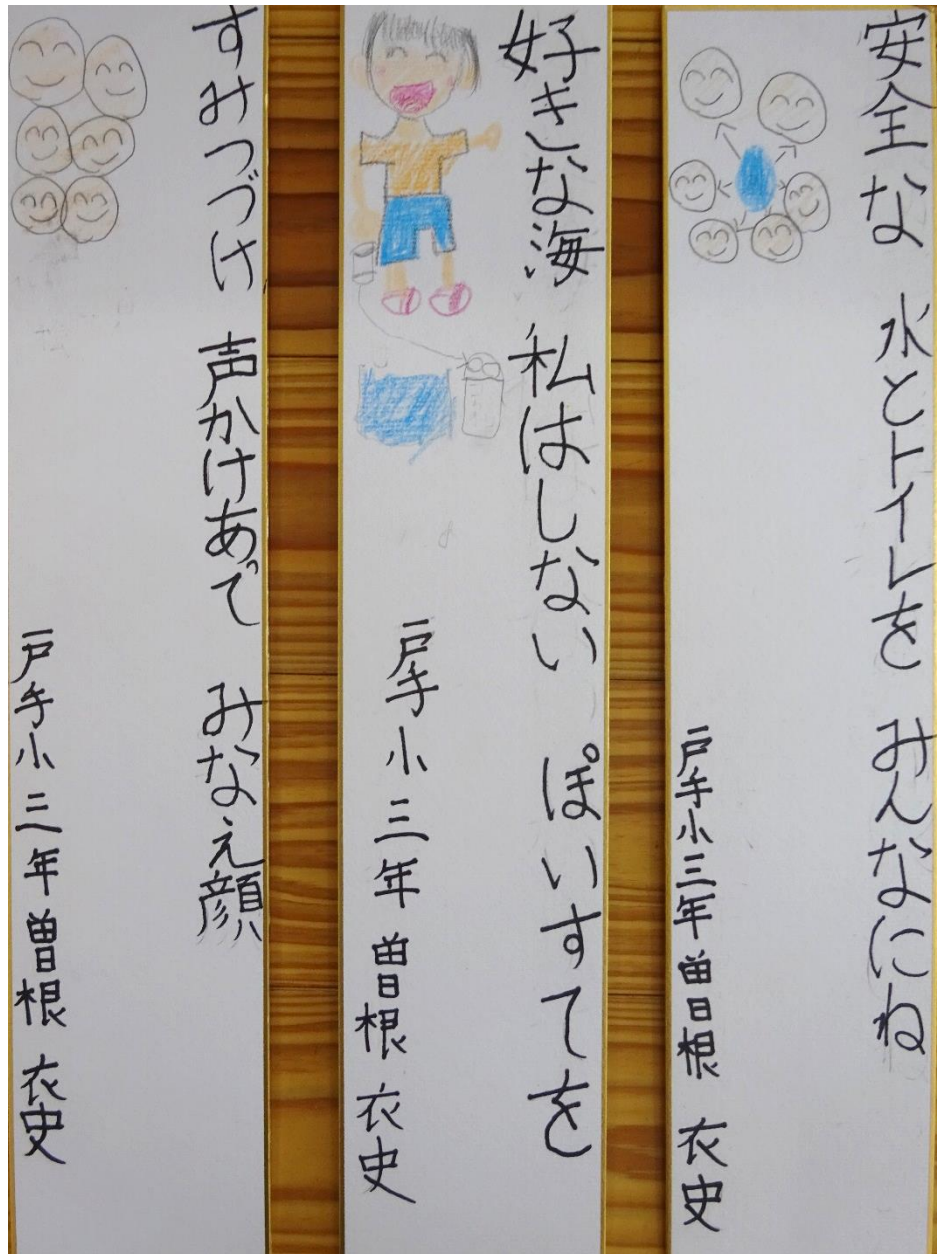 安全な 水とトイレを みんなにね
戸手小三年 曽根 衣史
好きな海 私はしない ぽいすてを
戸手小 三年 曽根 衣史
すみつづけ 声かけあって みなえ顔
戸手小 三年 曽根 衣史